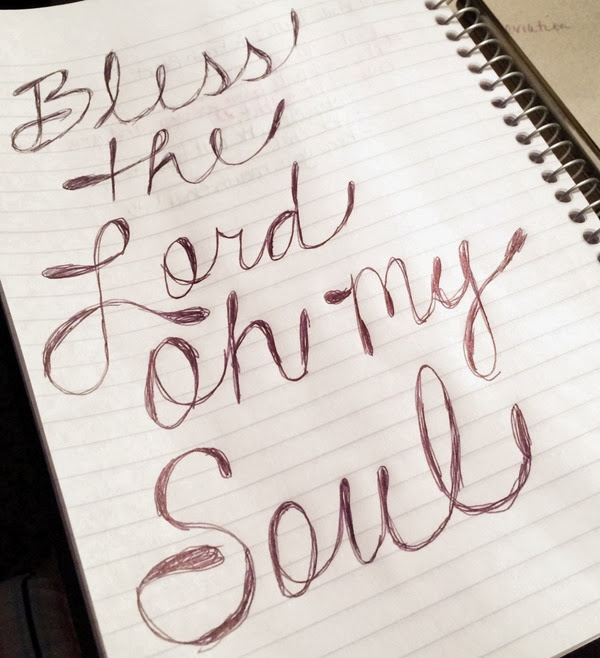 Bless
the
Lord
oh my
Soul